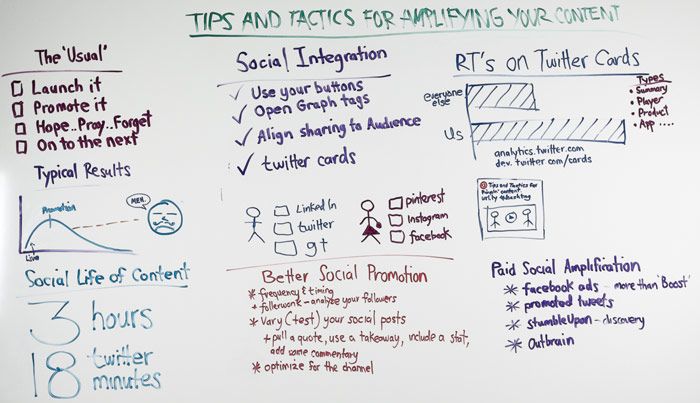 TIPS AND TACTICS FOR AMPLIFYING YOUR CONTENT
The 'Usual'
Launch it
Promote it
Hope..Pray..Forget
On to the next
Typical Results
Promotion
Live
MEH.
Social Life of Content
3 hours
18 twitter
minutes
Social Integration
Use your buttons
Open Graph tags
Align sharing to Audience
twitter cards
LinkedIn
twitter
g+
pinterest
Instagram
facebook
Better Social Promotion
* frequency & timing
+ followerwonk - analyze your followers
* Vary (test) your social posts
+ pull a quote, use a takeaway, include a stat,
add some commentary
* optimize for the channel
RT's on Twitter Cards
everyone
else
US
Types
• Summary
• Player
• Product
• App ....
analytics.twitter.com
dev.twitter.com/cards
Tips and Tactics for
content.
url.ly #hashtag
Paid Social Amplification
* facebook ads - more than 'Boost'
* promoted tweets
* StumbleUpon - discovery
* Outbrain